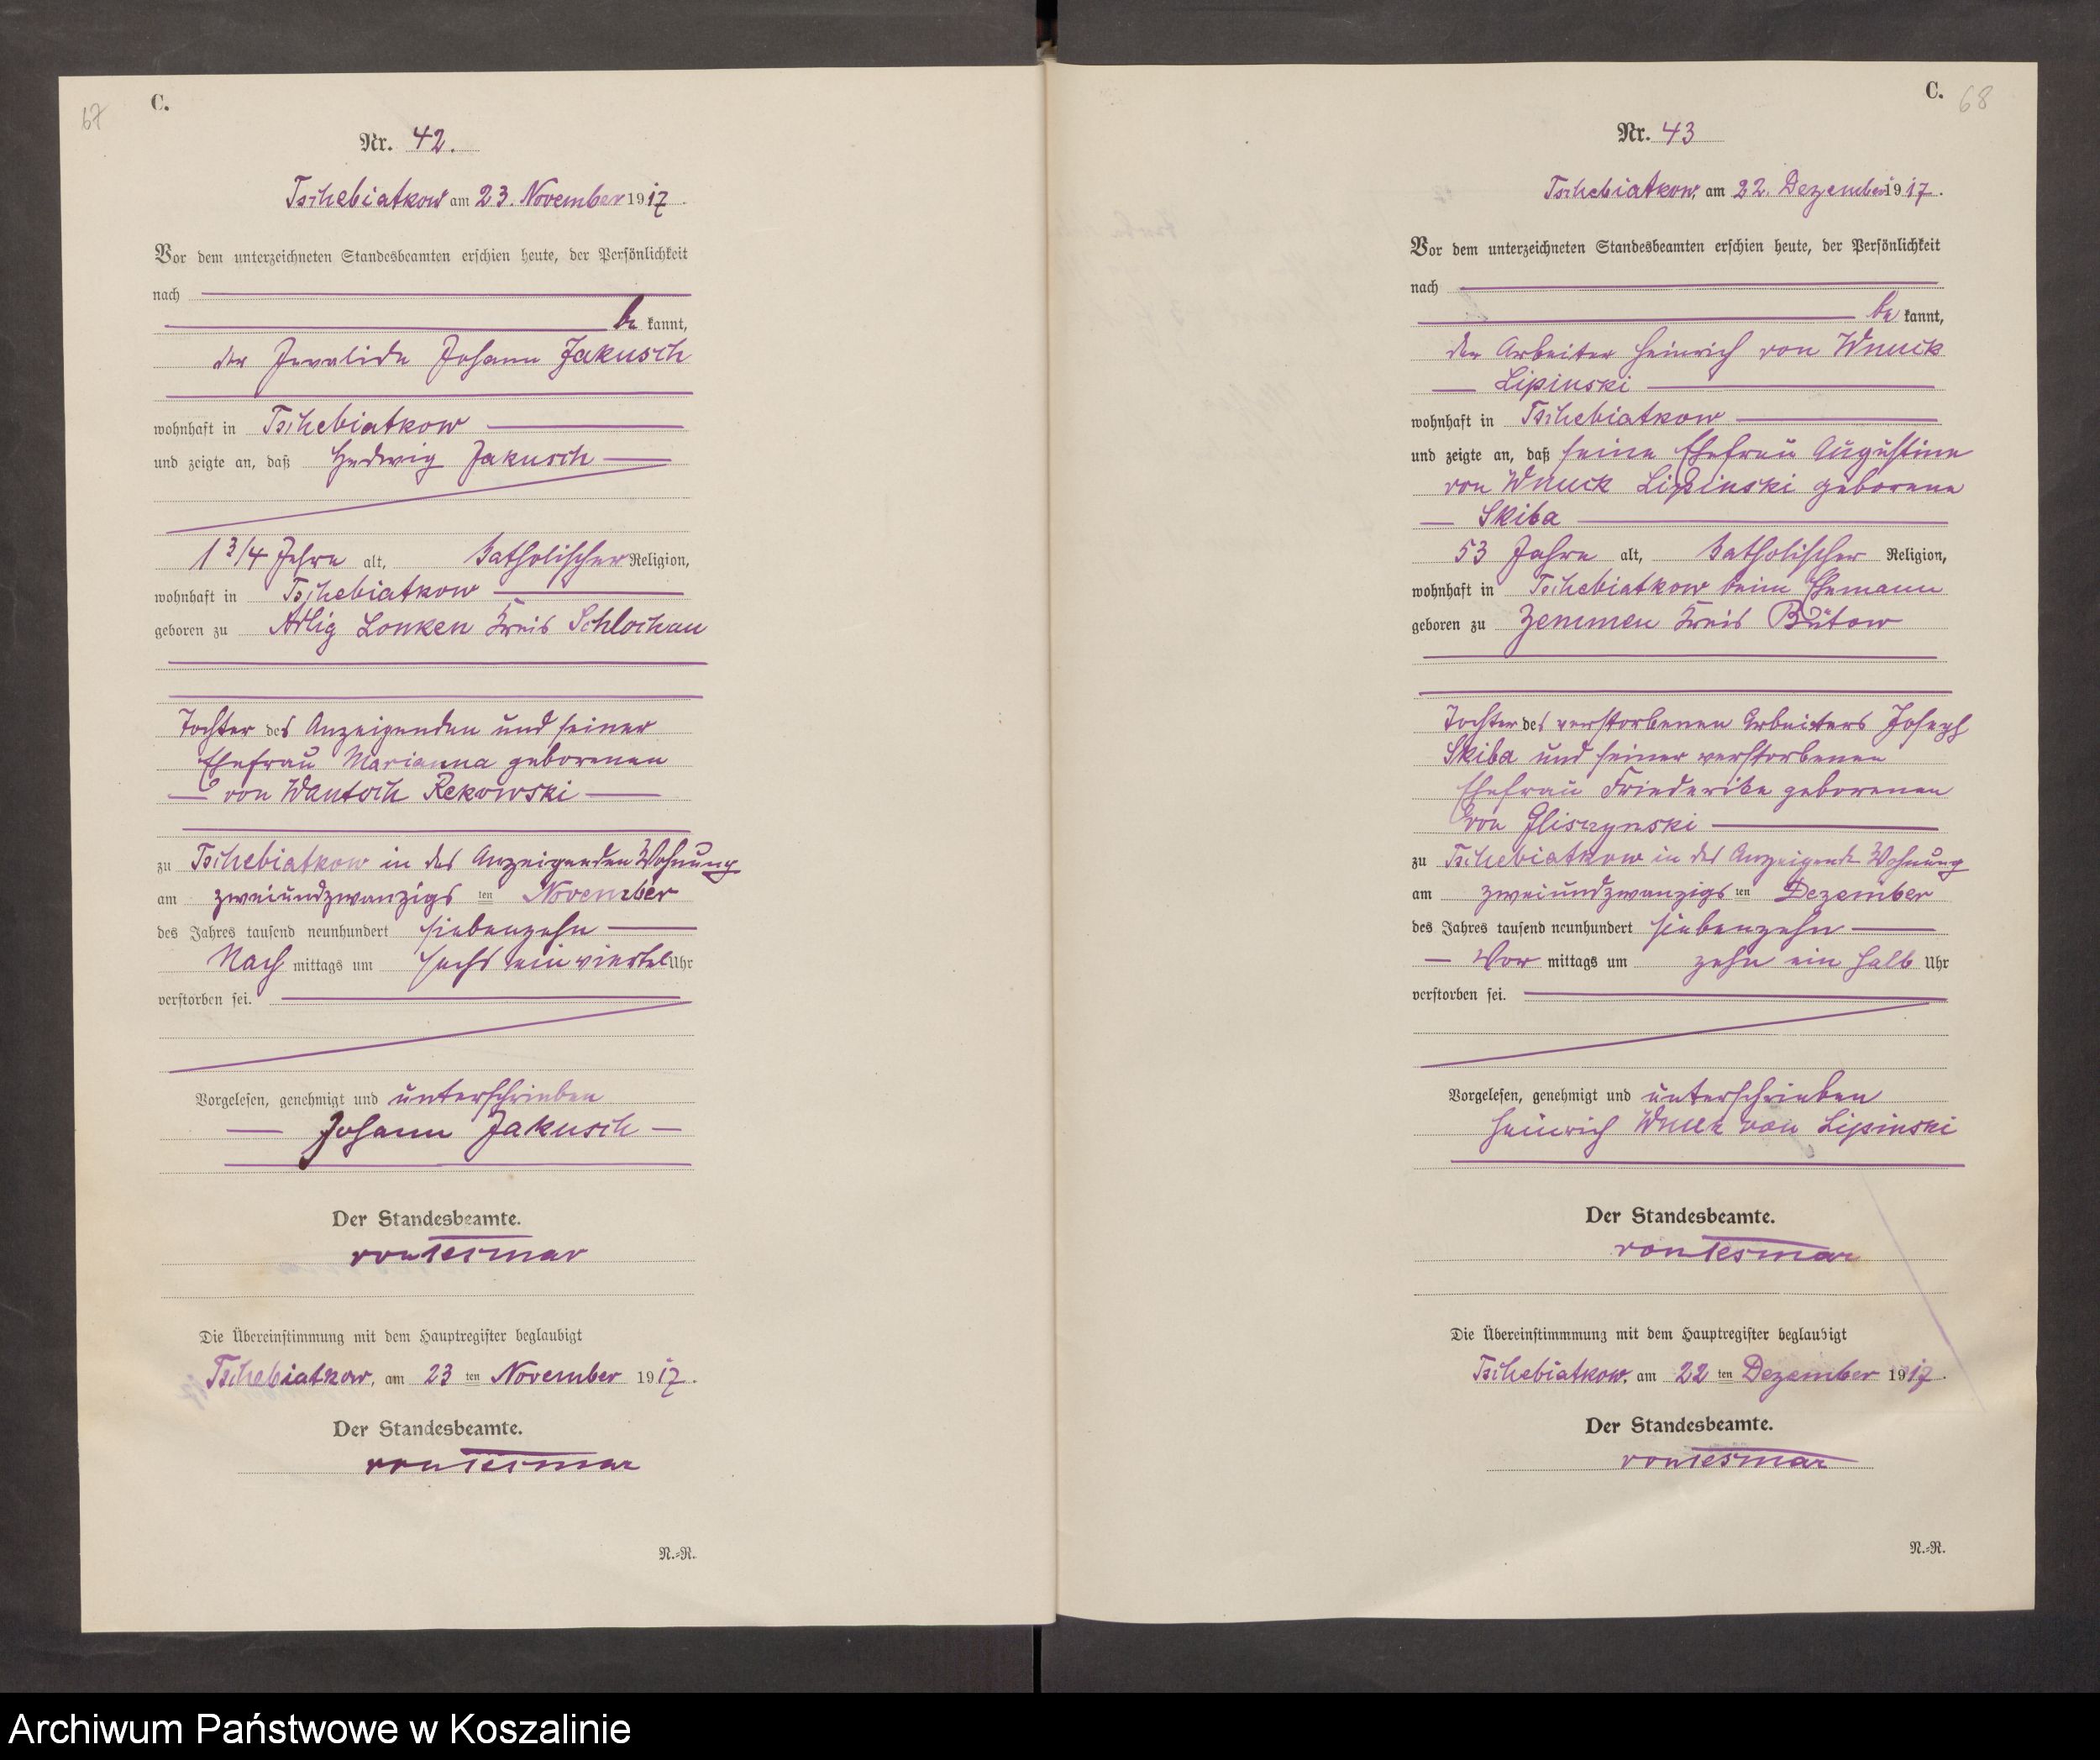 67
C.
Nr. 42.
Tschebiatkow am 23. November 1917.
Vor dem unterzeichneten Standesbeamten erschien heute, der Persönlichkeit
nach
be kannt,
der Invalide Johann Jakusch
wohnhaft in Tschebiatkow
und zeigte an, daß Hedwig Jakusch
1 3/4 Jahre alt, katholischer Religion,
wohnhaft in Tschebiatkow
geboren zu Adlig Lonken Kreis Schlochau
Tochter des Anzeigenden und seiner
Ehefrau Marianna geborenen
von Wantoch Rekowski
zu Tschebiatkow in des Anzeigenden Wohnung
am zweiundzwanzigs ten November
des Jahres tausend neunhundert siebenzehn
Nach mittags um sechs ein viertel Uhr
verstorben sei.
Vorgelesen, genehmigt und unterschrieben
Johann Jakusch
Der Standesbeamte.
von Tesmar
Die Übereinstimmung mit dem Hauptregister beglaubigt
Tschebiatkow, am 23 ten November 1917.
Der Standesbeamte.
von Tesmar
N.-R.
C. 68
Nr. 43
Tschebiatkow, am 22. Dezember 1917.
Vor dem unterzeichneten Standesbeamten erschien heute, der Persönlichkeit
nach
be kannt,
der Arbeiter Heinrich von Wnuck
Lipinski
wohnhaft in Tschebiatkow
und zeigte an, daß seine Ehefrau Augustine
von Wnuck Lipinski geborene
Skiba
53 Jahre alt, katholischer Religion,
wohnhaft in Tschebiatkow beim Ehemann
geboren zu Zemmen Kreis Bütow
Tochter des verstorbenen Arbeiters Joseph
Skiba und seiner verstorbenen
Ehefrau Friederike geborenen
von Gliszynski
zu Tschebiatkow in des Anzeigende Wohnung
am zweiundzwanzigs ten Dezember
des Jahres tausend neunhundert siebenzehn
Vor mittags um zehn ein halb Uhr
verstorben sei.
Vorgelesen, genehmigt und unterschrieben
Heinrich Wnuck von Lipinski
Der Standesbeamte.
von Tesmar
Die Übereinstimmmung mit dem Hauptregister beglaubigt
Tschebiatkow, am 22 ten Dezember 1917.
Der Standesbeamte.
von Tesmar
N.-R.
Archiwum Państwowe w Koszalinie